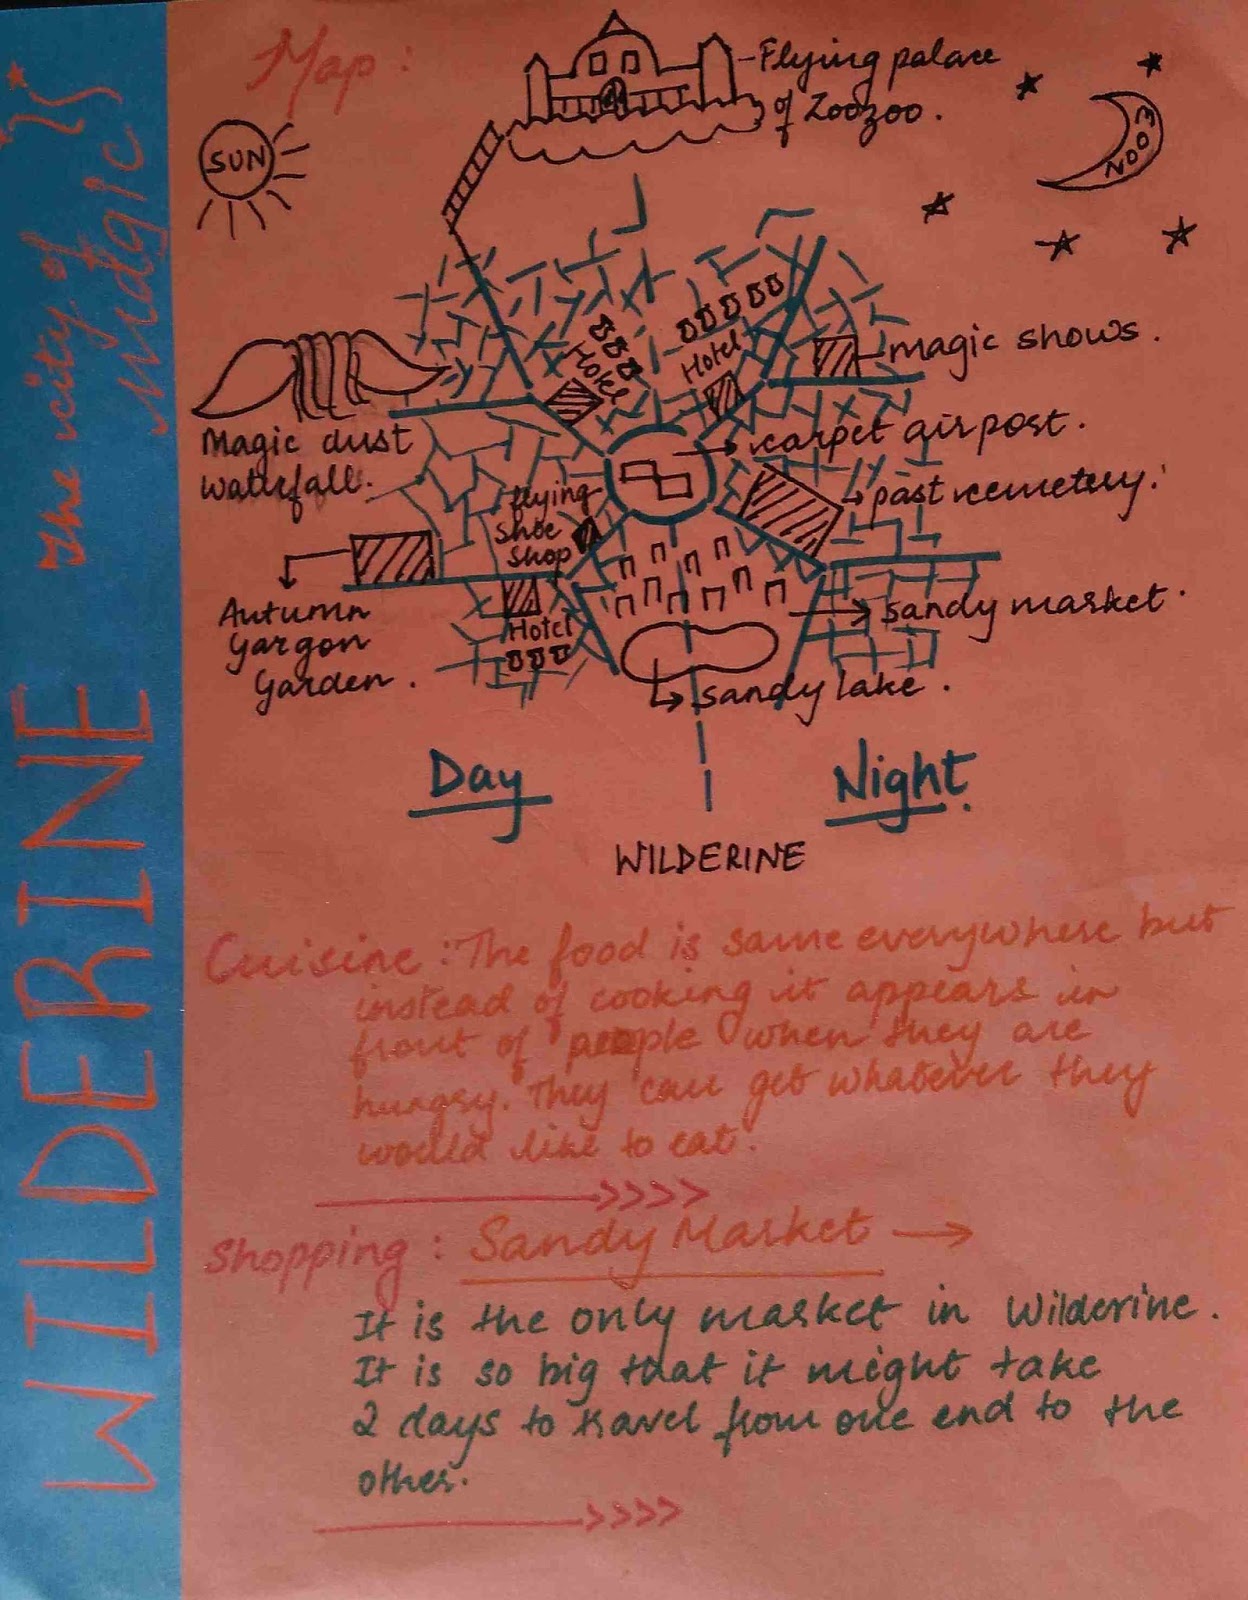 WILDERINE
The city of
Midgic
Map :
SUN
Flying palace
of Zoozoo.
MOON
Hotel
Hotel
magic shows.
Magic dust
waterfall.
carpet airpost.
past cemetery.
flying
shoe
shop
Autumn
Gargon
Garden.
Hotel
sandy market.
sandy lake.
Day
Night.
WILDERINE
Cuisine : The food is same everywhere but
instead of cooking it appears in
front of people when they are
hungry. They can get whatever they
would like to eat.
Shopping : Sandy Market →
It is the only market in Wilderine.
It is so big that it might take
2 days to travel from one end to the
other.